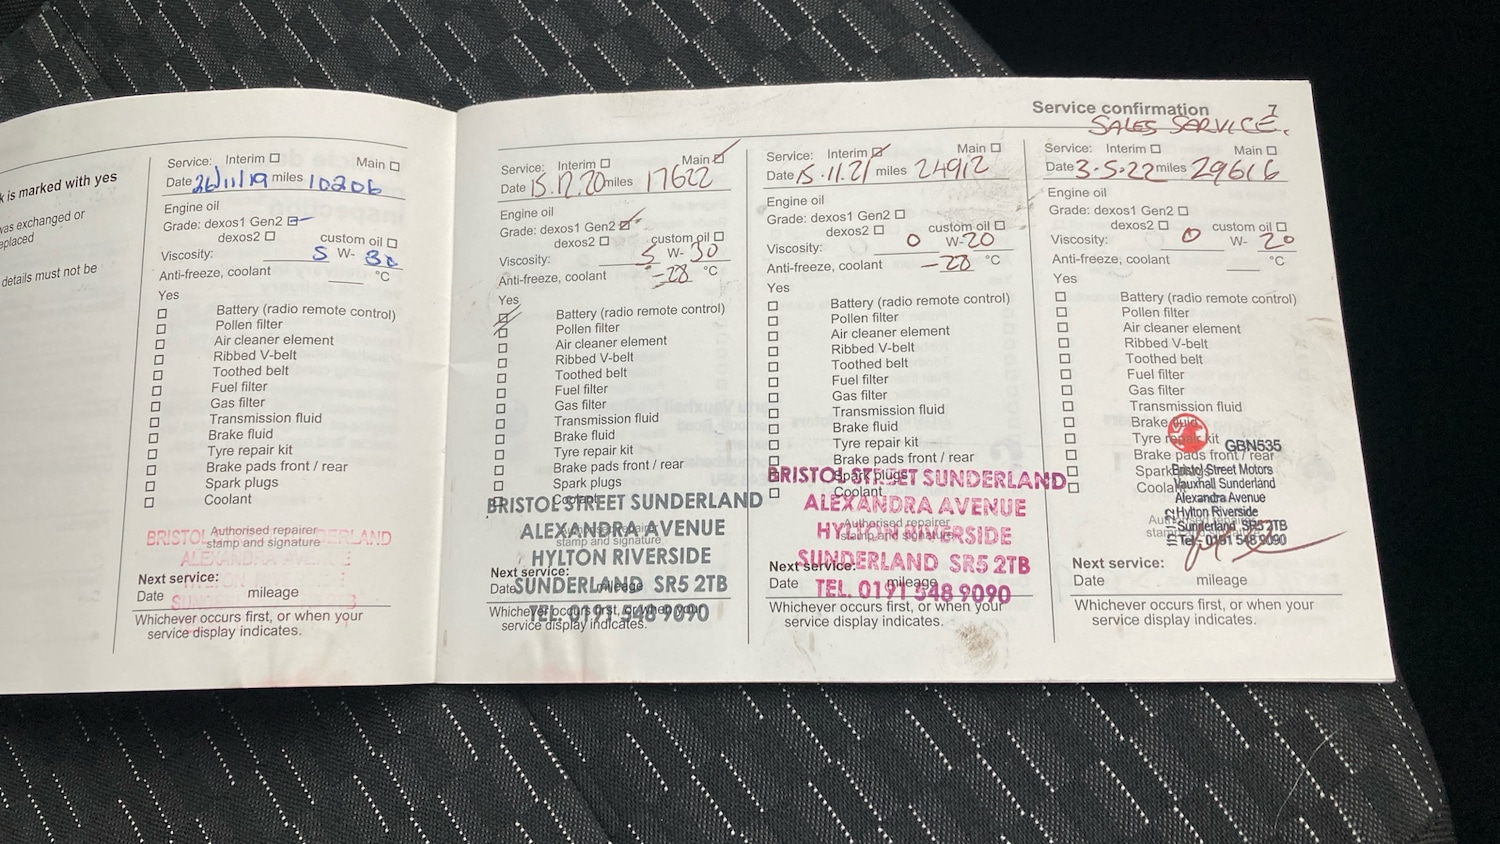 k is marked with yes
was exchanged or
eplaced
details must not be
Service: Interim ☐ Main ☐
Date 26/11/19 miles 10206
Engine oil
Grade: dexos1 Gen2 ☐
dexos2 ☐ custom oil ☐
Viscosity: 5 W- 30
Anti-freeze, coolant °C
Yes
☐ Battery (radio remote control)
☐ Pollen filter
☐ Air cleaner element
☐ Ribbed V-belt
☐ Toothed belt
☐ Fuel filter
☐ Gas filter
☐ Transmission fluid
☐ Brake fluid
☐ Tyre repair kit
☐ Brake pads front / rear
☐ Spark plugs
☐ Coolant
Authorised repairer
stamp and signature
BRISTOL SUNDERLAND
ALEXANDRA AVENUE
Next service:
Date mileage
Whichever occurs first, or when your
service display indicates.
Service confirmation 7
SALES SERVICE.
Service: Interim ☐ Main ☑
Date 15.12.20 miles 17622
Engine oil
Grade: dexos1 Gen2 ☑
dexos2 ☐ custom oil ☐
Viscosity: 5 W- 30
Anti-freeze, coolant -28 °C
Yes
☑ Battery (radio remote control)
☑ Pollen filter
☐ Air cleaner element
☐ Ribbed V-belt
☐ Toothed belt
☐ Fuel filter
☐ Gas filter
☐ Transmission fluid
☐ Brake fluid
☐ Tyre repair kit
☐ Brake pads front / rear
☐ Spark plugs
☐ Coolant
Authorised repairer
stamp and signature
BRISTOL STREET SUNDERLAND
ALEXANDRA AVENUE
HYLTON RIVERSIDE
SUNDERLAND SR5 2TB
TEL. 0191 548 9090
Next service:
Date mileage
Whichever occurs first, or when your
service display indicates.
Service: Interim ☑ Main ☐
Date 15.11.21 miles 24912
Engine oil
Grade: dexos1 Gen2 ☐
dexos2 ☐ custom oil ☐
Viscosity: 0 W- 20
Anti-freeze, coolant -28 °C
Yes
☐ Battery (radio remote control)
☐ Pollen filter
☐ Air cleaner element
☐ Ribbed V-belt
☐ Toothed belt
☐ Fuel filter
☐ Gas filter
☐ Transmission fluid
☐ Brake fluid
☐ Tyre repair kit
☐ Brake pads front / rear
☐ Spark plugs
☐ Coolant
Authorised repairer
stamp and signature
BRISTOL STREET SUNDERLAND
ALEXANDRA AVENUE
HYLTON RIVERSIDE
SUNDERLAND SR5 2TB
TEL. 0191 548 9090
Next service:
Date mileage
Whichever occurs first, or when your
service display indicates.
Service: Interim ☐ Main ☐
Date 3.5.22 miles 29616
Engine oil
Grade: dexos1 Gen2 ☐
dexos2 ☐ custom oil ☐
Viscosity: 0 W- 20
Anti-freeze, coolant °C
Yes
☐ Battery (radio remote control)
☐ Pollen filter
☐ Air cleaner element
☐ Ribbed V-belt
☐ Toothed belt
☐ Fuel filter
☐ Gas filter
☐ Transmission fluid
☐ Brake fluid
☐ Tyre repair kit
☐ Brake pads front / rear
☐ Spark plugs
☐ Coolant
GBN535
Bristol Street Motors
Vauxhall Sunderland
Alexandra Avenue
Hylton Riverside
Sunderland SR5 2TB
Tel - 0191 548 9090
Next service:
Date mileage
Whichever occurs first, or when your
service display indicates.